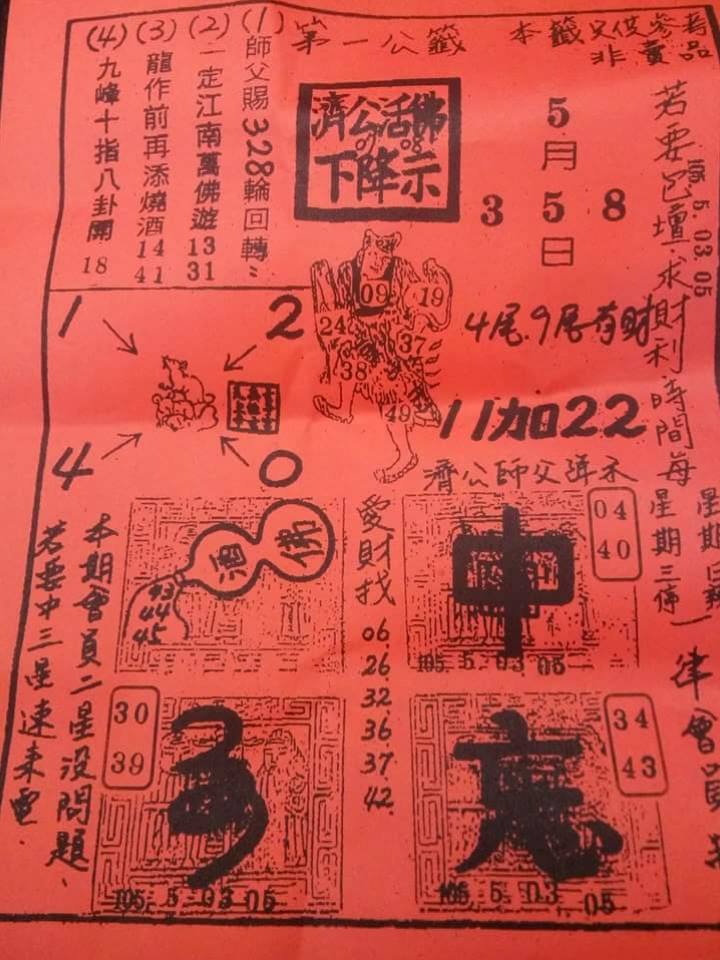 第一公籤
本籤只供參考
非賣品
(1)師父賜328輪回轉
(2)一定江南萬佛遊 13 31
(3)龍作前再添燒酒 14 41
(4)九峰十指八卦開 18
濟公活佛
07 08
下降示
5月5日
3 8
105.5.03.05
若要包壇求財利時間每
星期三停
4尾.9尾有財
11加22
濟公師父降示
09 19
24 37
38
49
1 2
4 0
酒 佛
43
44
45
愛財找
06.
26
32
36.
37
42
中
04
40
105.5.03 05
30
39
105.5.03 05
34
43
105.5.03
05
本期會員二星沒問題.
若要中三星速來電.